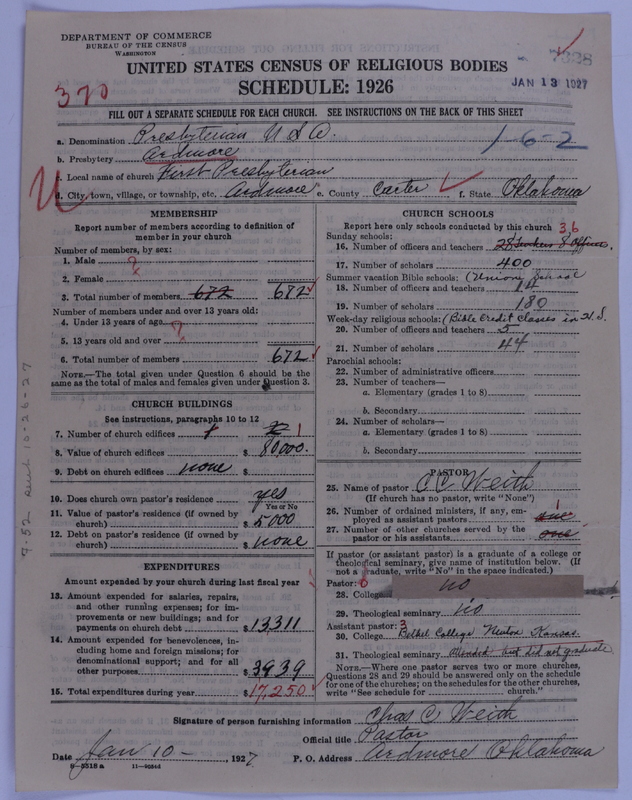 DEPARTMENT OF COMMERCE
BUREAU OF THE CENSUS
WASHINGTON
7328
JAN 13 1927
UNITED STATES CENSUS OF RELIGIOUS BODIES
SCHEDULE: 1926
370
FILL OUT A SEPARATE SCHEDULE FOR EACH CHURCH. SEE INSTRUCTIONS ON THE BACK OF THIS SHEET
a. Denomination Presbyterian U S A.
1-6-2
b. Presbytery Ardmore
c. Local name of church First Presbyterian
d. City, town, village, or township, etc. Ardmore e. County Carter f. State Oklahoma
MEMBERSHIP
Report number of members according to definition of
member in your church
Number of members, by sex:
1. Male ?
2. Female
3. Total number of members 672 672
Number of members under and over 13 years old:
4. Under 13 years of age ?
5. 13 years old and over
6. Total number of members 672
NOTE.—The total given under Question 6 should be
same as the total of males and females given under Question 3.
CHURCH BUILDINGS
See instructions, paragraphs 10 to 12
7. Number of church edifices 1 1
8. Value of church edifices $ 80000.
9. Debt on church edifices none $
10. Does church own pastor's residence yes
Yes or No
11. Value of pastor's residence (if owned by
church) $ 5000
12. Debt on pastor's residence (if owned by
church) $ none
EXPENDITURES
Amount expended by your church during last fiscal year
13. Amount expended for salaries, repairs,
and other running expenses; for im-
provements or new buildings; and for
payments on church debt $ 13311
14. Amount expended for benevolences, in-
cluding home and foreign missions; for
denominational support; and for all
other purposes $ 3939
15. Total expenditures during year $ 17,250
CHURCH SCHOOLS
Report here only schools conducted by this church 36
Sunday schools:
16. Number of officers and teachers 28 Teachers 8 Officers.
17. Number of scholars 400
Summer vacation Bible schools: (Union School
18. Number of officers and teachers 14
19. Number of scholars 180
Week-day religious schools: (Bible Credit Classes in H. S.
20. Number of officers and teachers 5
21. Number of scholars 44
Parochial schools:
22. Number of administrative officers
23. Number of teachers—
a. Elementary (grades 1 to 8)
b. Secondary
24. Number of scholars—
a. Elementary (grades 1 to 8)
b. Secondary
PASTOR
25. Name of pastor C C Weith
(If church has no pastor, write "None")
26. Number of ordained ministers, if any, em-
ployed as assistant pastors one 1
27. Number of other churches served by the
pastor or his assistants one
If pastor (or assistant pastor) is a graduate of a college or
theological seminary, give name of institution below. (If
not a graduate, write "No" in the space indicated.)
Pastor: 6
28. College no
29. Theological seminary no
Assistant pastor: 3
30. College Bethel College Newton Kansas.
31. Theological seminary Attended but did not graduate
NOTE.—Where one pastor serves two or more churches,
Questions 28 and 29 should be answered only on the schedule
for one of the churches; on the schedules for the other churches,
write "See schedule for church."
Signature of person furnishing information Chas C Weith
Official title Pastor
Date Jan 10 - , 1927 P. O. Address Ardmore Oklahoma
8—5518 a